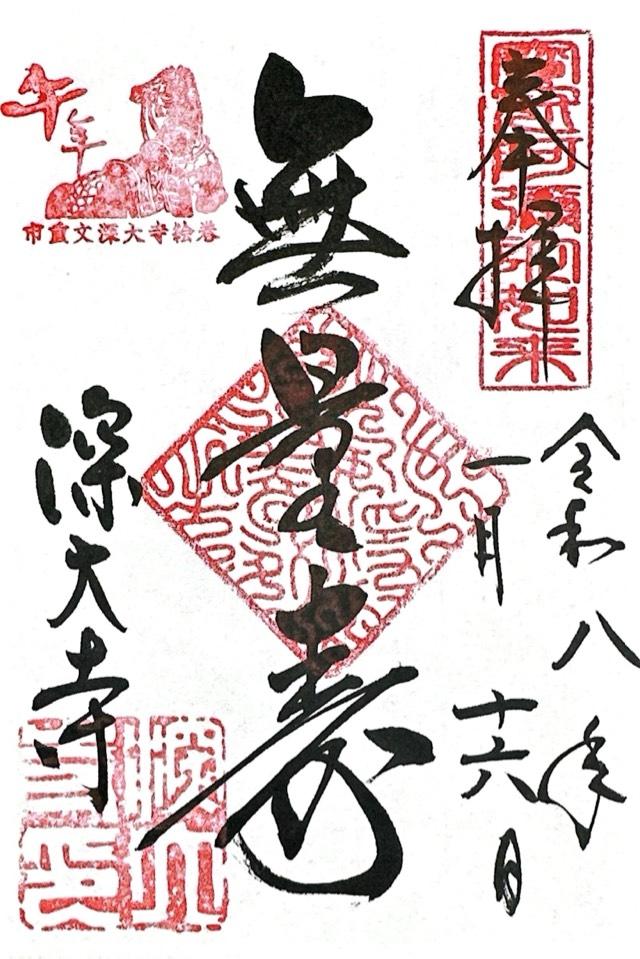 奉拝
令和八年
一月十六日
無量寿
深大寺
午年
市重文深大寺絵巻